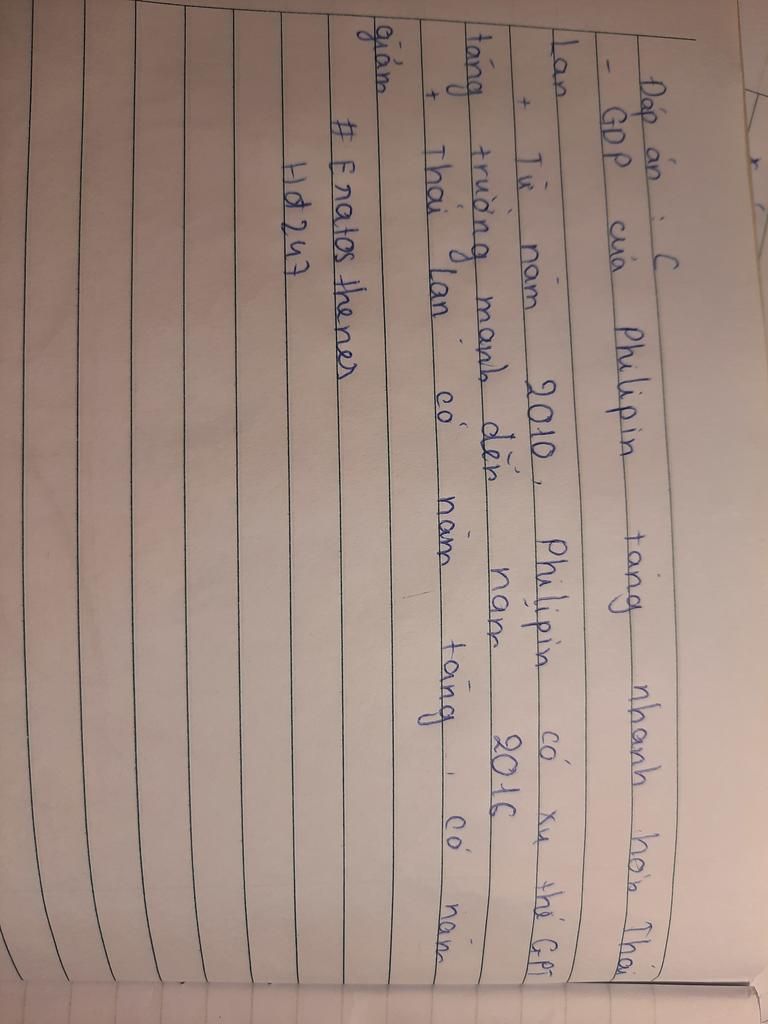 Đáp án : C
- GDP của Philipin tăng nhanh hơn Thái
Lan
+ Từ năm 2010, Philipin có xu thế GPT
tăng trưởng mạnh đến năm 2016
+ Thái Lan có năm tăng, có năm
giảm
# Eratosthenes
Hd247